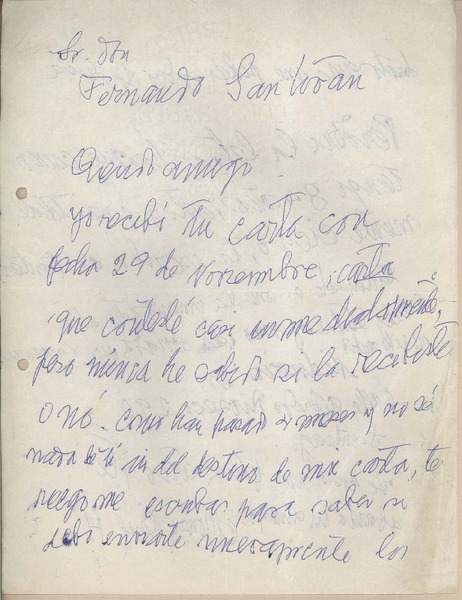 Sr. don
Fernando Santiván
Querido amigo:
yo recibí tu carta con
fecha 29 de noviembre, carta
que contesté casi inmediatamente,
pero nunca he sabido si la recibiste
o nó. como han pasado meses y no sé
nada de ti ni del destino de mi carta, te
ruego me escribas para saber si
debo enviarte nuevamente los